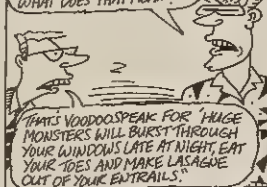 WHAT DOES THAT
THATS VOODOOSPEAK FOR "HUGE
MONSTERS WILL BURST THROUGH
YOUR WINDOWS LATE AT NIGHT, EAT
YOUR TOES AND MAKE LASAGNE
OUT OF YOUR ENTRAILS."